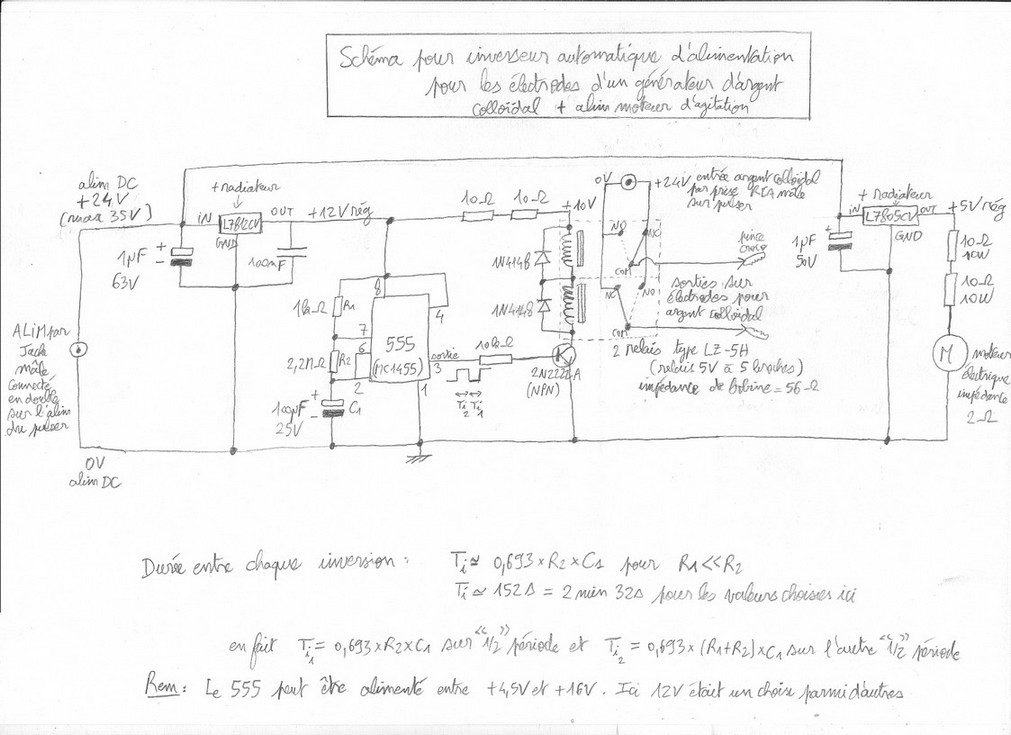 Schéma pour inverseur automatique d'alimentation
pour les électrodes d'un générateur d'argent
colloïdal + alim moteur d'agitation
alim DC
+24V
(max 35V)
+ radiateur
iN
L7812CV
OUT
GND
+12V rég
1µF
63V
100nF
10Ω
10Ω
+10V
0V
+24V
entrée argent colloïdal
par prise RCA mâle
sur pulser
+ radiateur
iN
L7805CV
OUT
GND
+5V rég
1µF
50V
10Ω
10W
10Ω
10W
M
moteur
électrique
impédance
2Ω
1N4148
1N4148
NO
NC
COM
NC
NO
COM
pince
croco
sorties sur
électrodes pour
argent colloïdal
2 relais type LZ-5H
(relais 5V à 5 broches)
impédance de bobine = 56Ω
1kΩ
R1
7
8
4
555
(MC1455)
6
2,2MΩ
R2
2
1
sortie
3
10kΩ
Ti2
Ti1
2N2222A
(NPN)
100µF
25V
C1
ALiM par
Jack
mâle
connecté
en double
sur l'alim
du pulser
0V
alim DC
Durée entre chaque inversion : Ti ≃ 0,693 × R2 × C1 pour R1 << R2
Ti ≃ 152s = 2 min 32s pour les valeurs choisies ici
en fait Ti1 = 0,693 × R2 × C1 sur "1/2" période et Ti2 = 0,693 × (R1+R2) × C1 sur l'autre "1/2" période
Rem : Le 555 peut être alimenté entre +4,5V et +16V. Ici 12V était un choix parmi d'autres